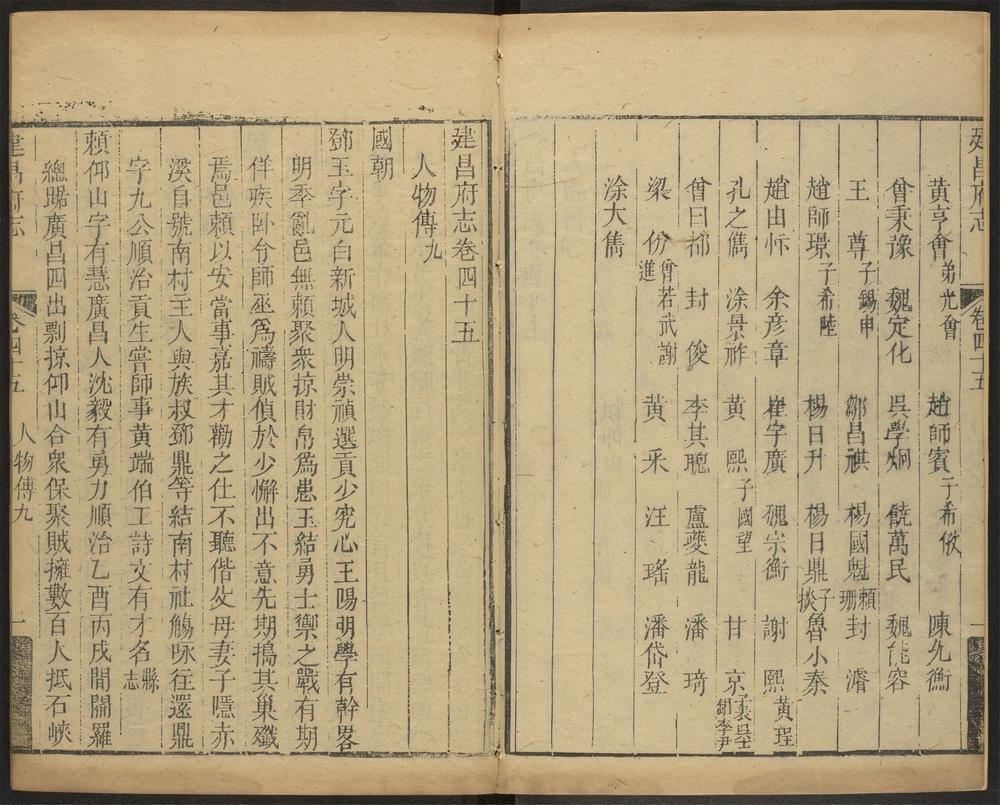 建昌府志 卷四十五 一
黃亨會弟光會 趙師賓子希攸 陳允衡
曾秉豫 魏定化 吳學炯 饒萬民 魏能容
王 尊子錫申 鄒昌祺 楊國魁賴珊 封 濬
趙師璟子希陞 楊日升 楊日鼎子掞 魯小泰
趙由忭 余彥章 崔字廣 魏宗衡 謝 熙黃珵
孔之儁 涂景祚 黃 熙子國望 甘 京
曾曰都 封 俊 李其聰 盧夔龍 潘 琦
梁 份曾若武謝進 黃 采 汪 瑤 潘岱登
涂大雋
建昌府志卷四十五
人物傳九
國朝
鄧玉字元白新城人明崇禎選貢少究心王陽明學有幹畧
明季亂邑無賴聚衆掠財帛爲患玉結勇士禦之戰有期
佯疾卧令師巫爲禱賊偵於少懈出不意先期搗其巢殲
焉邑賴以安當事嘉其才勸之仕不聽偕父母妻子隱赤
溪自號南村主人與族叔鄧鼎等結南村社觴咏往還鼎
字九公順治貢生嘗師事黃端伯工詩文有才名縣志
賴仰山字有慧廣昌人沈毅有勇力順治乙酉丙戌間關羅
總踞廣昌四出剽掠仰山合衆保聚賊擁數百人抵石峽
建昌府志 卷四十五 人物傳九 一